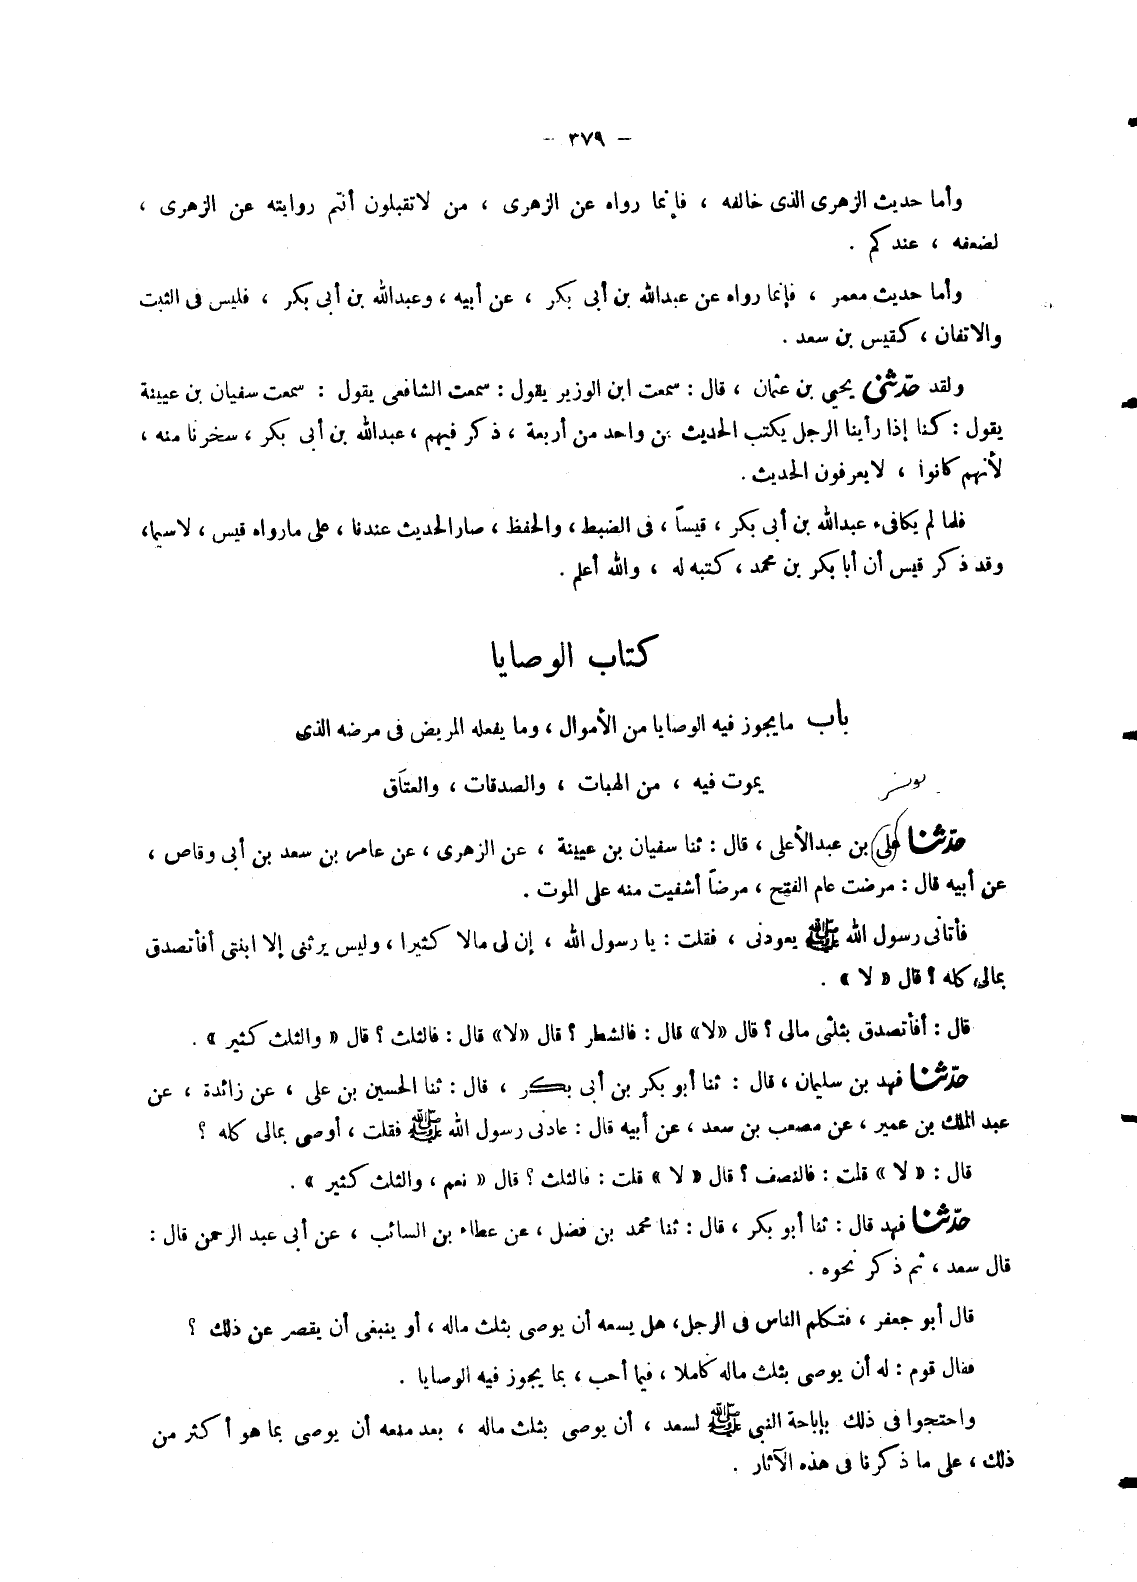 — ٣٧٩ —
وأما حديث الزهرى الذى خالفه ، فإنما رواه عن الزهرى ، من لاتقبلون أنتم روايته عن الزهرى ،
لضعفه ، عندكم .
وأما حديث معمر ، فإنما رواه عن عبدالله بن أبى بكر ، عن أبيه ، وعبدالله بن أبى بكر ، فليس فى الثبت
والاتقان ، كقيس بن سعد .
ولقد حدّثنى يحيى بن عثمان ، قال : سمعت ابن الوزير يقول : سمعت الشافعى يقول : سمعت سفيان بن عيينة
يقول : كنا إذا رأينا الرجل يكتب الحديث عن واحد من أربعة ، ذكر فيهم ، عبدالله بن أبى بكر ، سخرنا منه ،
لأنهم كانوا ، لايعرفون الحديث .
فلما لم يكافىء عبدالله بن أبى بكر ، قيساً ، فى الضبط ، والحفظ ، صارالحديث عندنا ، على مارواه قيس ، لاسيما،
وقد ذكر قيس أن أبا بكر بن محمد ، كتبه له ، والله أعلم .
كتاب الوصايا
باب مايجوز فيه الوصايا من الأموال ، وما يفعله المريض فى مرضه الذى
يموت فيه ، من الهبات ، والصدقات ، والعتاق
يونس
حدّثنا على بن عبدالأعلى ، قال : ثنا سفيان بن عيينة ، عن الزهرى ، عن عامر بن سعد بن أبى وقاص ،
عن أبيه قال : مرضت عام الفتح ، مرضاً أشفيت منه على الموت .
فأتانى رسول الله ﷺ يعودنى ، فقلت : يا رسول الله ، إن لى مالا كثيرا ، وليس يرثنى إلا ابنتى أفأتصدق
بمالى كله ؟ قال « لا » .
قال : أفأتصدق بثلثى مالى ؟ قال «لا» قال : فالشطر ؟ قال «لا» قال : فالثلث ؟ قال « والثلث كثير » .
حدّثنا فهد بن سليمان ، قال : ثنا أبو بكر بن أبى بكر ، قال : ثنا الحسين بن على ، عن زائدة ، عن
عبد الملك بن عمير ، عن مصعب بن سعد ، عن أبيه قال : عادنى رسول الله ﷺ فقلت ، أوصى بمالى كله ؟
قال : « لا » قلت : فالنصف ؟ قال « لا » قلت : فالثلث ؟ قال « نعم ، والثلث كثير » .
حدّثنا فهد قال : ثنا أبو بكر ، قال : ثنا محمد بن فضل ، عن عطاء بن السائب ، عن أبى عبد الرحمن قال :
قال سعد ، ثم ذكر نحوه .
قال أبو جعفر ، فتكلم الناس فى الرجل، هل يسعه أن يوصى بثلث ماله ، أو ينبغى أن يقصر عن ذلك ؟
فقال قوم : له أن يوصى بثلث ماله كاملا ، فيما أحب ، بما يجوز فيه الوصايا .
واحتجوا فى ذلك بإباحة النبى ﷺ لسعد ، أن يوصى بثلث ماله ، بعد منعه أن يوصى بما هو أكثر من
ذلك ، على ما ذكرنا فى هذه الآثار .